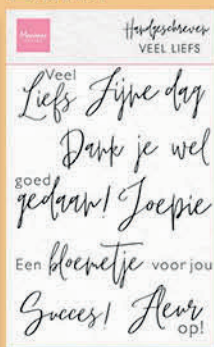 Marianne
Handgeschreven
VEEL LIEFS
Veel
Liefs Fijne dag
Dank je wel
goed
gedaan! Joepie
Een bloemetje voor jou
Succes! Fleur
op!